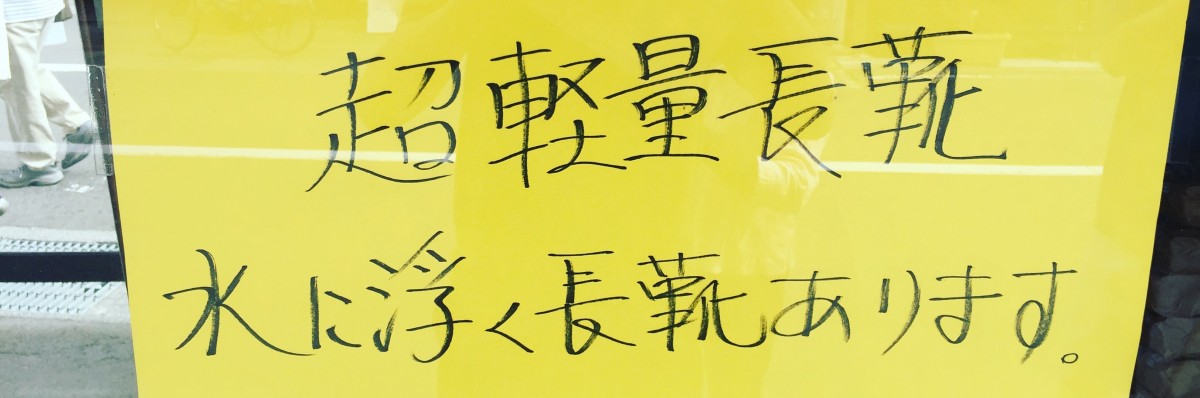 超軽量長靴
水に浮く長靴あります。